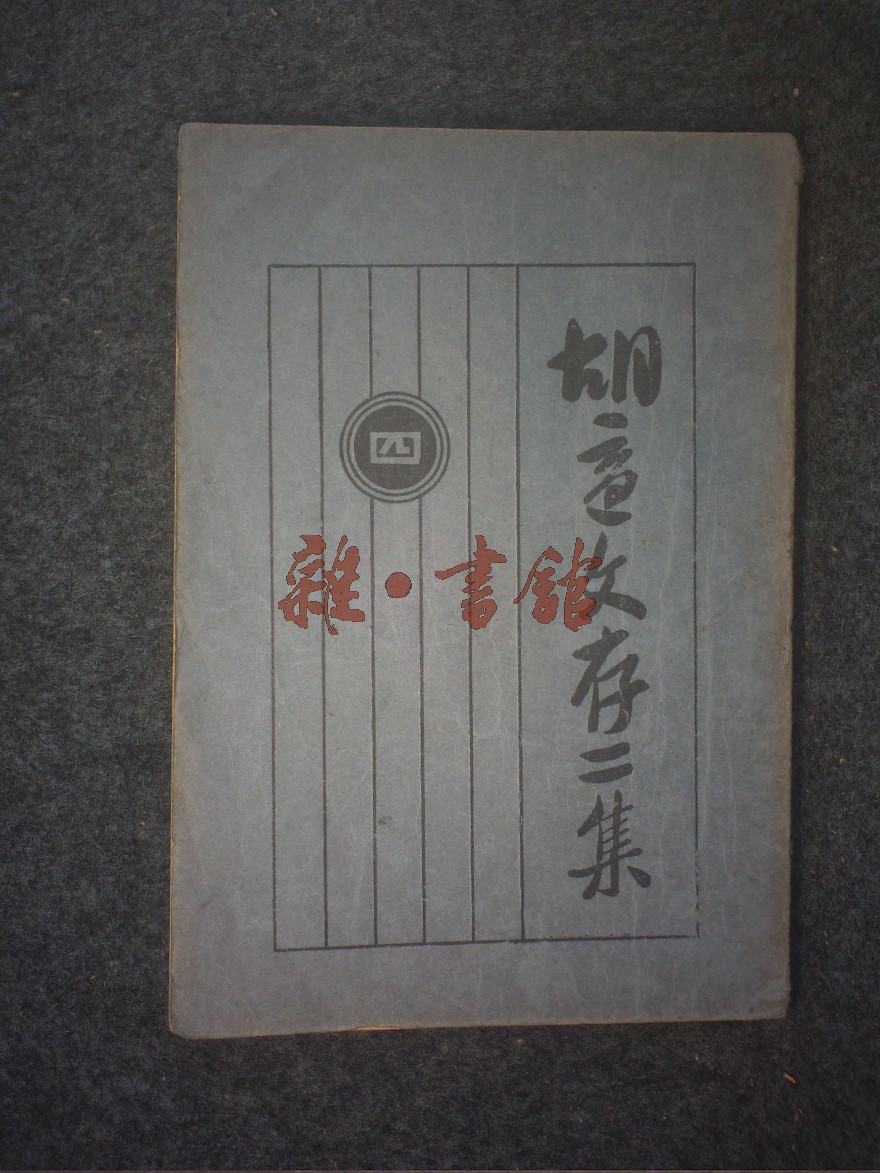 胡適文存二集
四
雜·書館